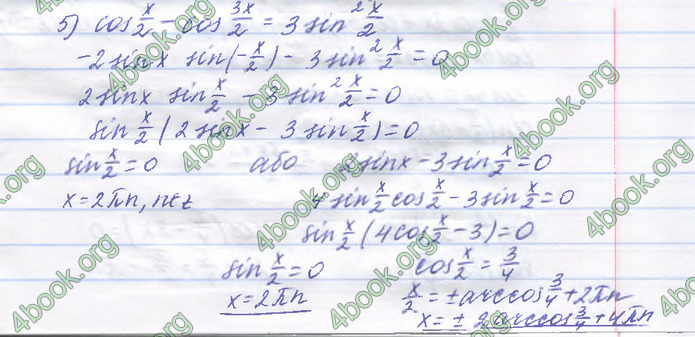 5) cos x/2 - cos 3x/2 = 3 sin² x/2
-2 sin x sin(-x/2) - 3 sin² x/2 = 0
2 sin x sin x/2 - 3 sin² x/2 = 0
sin x/2 (2 sin x - 3 sin x/2) = 0
sin x/2 = 0 або 2 sin x - 3 sin x/2 = 0
x = 2πn, n∈z 4 sin x/2 cos x/2 - 3 sin x/2 = 0
sin x/2 (4 cos x/2 - 3) = 0
sin x/2 = 0 cos x/2 = 3/4
x = 2πn x/2 = ± arccos 3/4 + 2πn
x = ± 2 arccos 3/4 + 4πn
4book.org
4book.org
4book.org
4book.org
4book.org
4book.org
4book.org
4book.org